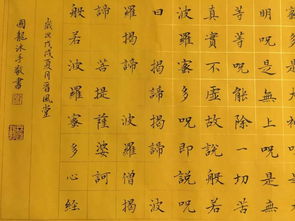 明呪是無上呪是無
等等呪能除一切苦
真實不虛故說般若
波羅蜜多呪即說呪
曰 揭諦揭諦波
羅揭諦波羅僧揭
諦菩提薩婆訶
般若波羅蜜多心經
歲次戊戌夏月晉風堂
國龍沐手敬書